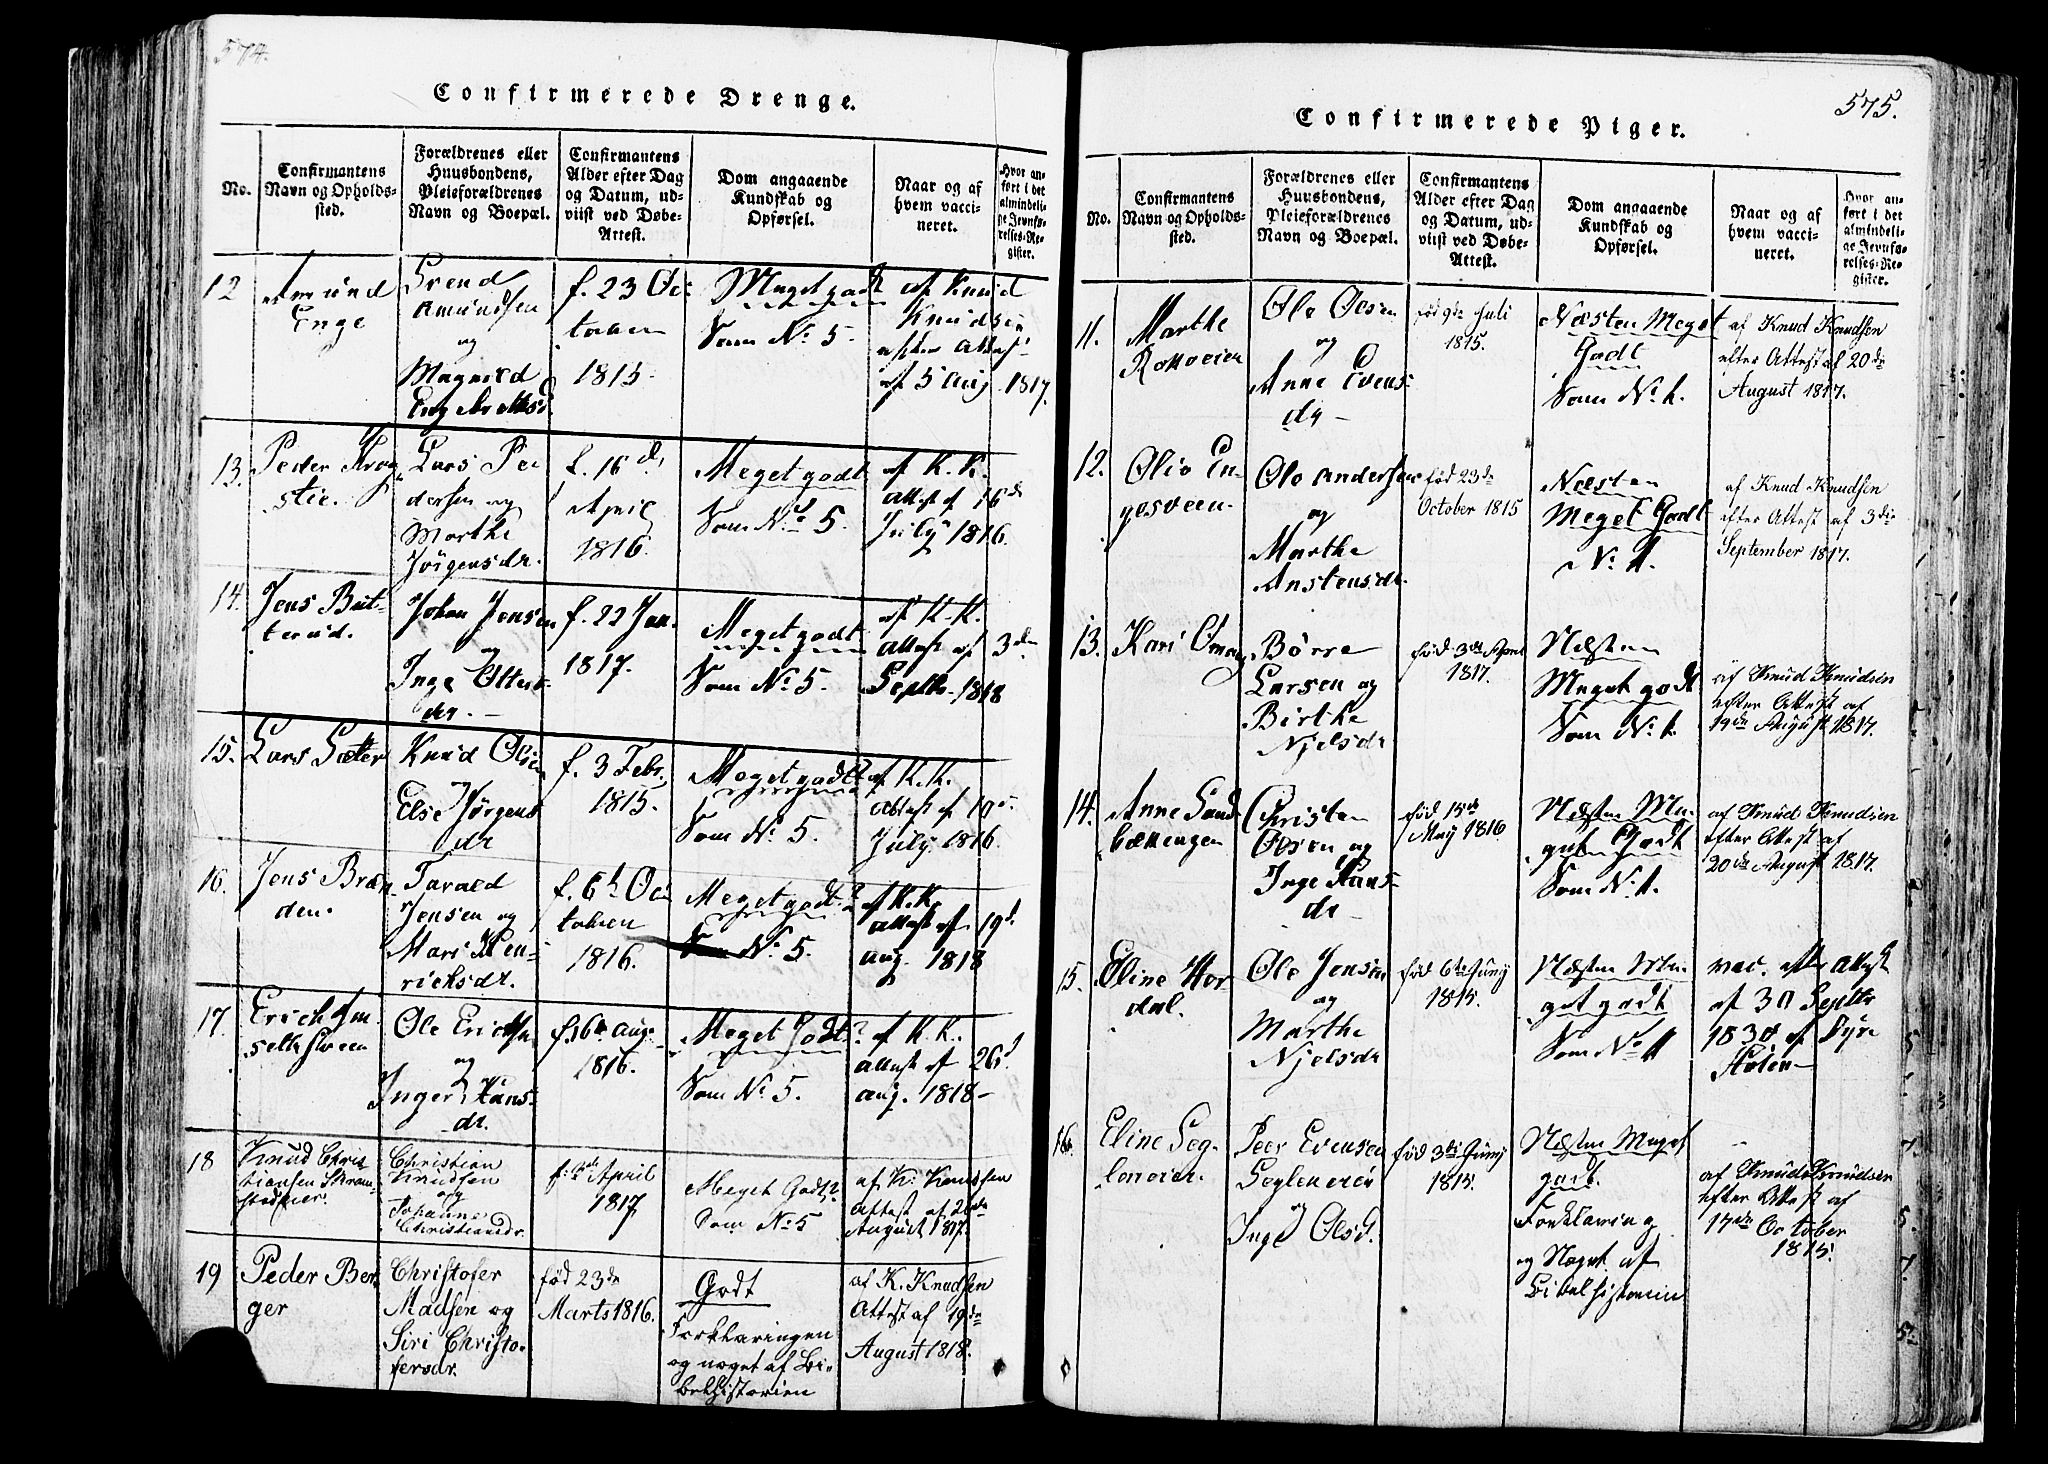 574.
Confirmerede Drenge.
No.
Confirmantens
Navn og Opholds-
sted.
Forældrenes eller
Huusbondens,
Pleieforældrenes
Navn og Boepæl.
Confirmantens
Alder efter Dag
og Datum, ud-
viist ved Døbe-
Attest.
Dom angaaende
Kundskab og
Opførsel.
Naar og af
hvem vacci-
neret.
Hvor an-
ført i det
almindeli-
ge Jevnfø-
relses-Re-
gister.
12
Amund
Enge
Svend
Amundsen
og
Magnild
Engebrettsd
f. 23 Oc
tober
1815.
Meget godt
Som No 5.
af Knud
Knudsen
efter Attest
af 5 Aug 1817.
13.
Peder Krog
stie.
Lars Pe
dersen og
Marthe
Jørgensdr.
f. 16 d.
April
1816.
Meget godt
Som No 5.
af K. K.
Attest af 16 d
July 1816.
14.
Jens But-
terud.
Johan Jensen
Inge Otters-
dr.
f. 22 Jan.
1817.
Meget godt
Som No 5.
af K. K.
Attest af 3 de
Septbr. 1818
15.
Lars Sæter
Knud Olsen
Else Jørgens
dr
f. 3 Febr.
1815.
Meget godt
Som No 5.
af K. K.
Attest af 19 d.
July 1816
16.
Jens Bræn
den.
Tarald
Jensen og
Mari Hen-
richsdr.
f. 6 Oc
tober
1816.
Meget godt
Som No 5.
af K. K.
Attest af 19 d.
Aug. 1818
17.
Erich
Ole Erichsen
og
Inger Hans
dr.
f. 16 Aug.
1816.
Meget Godt
Som No 5.
af K. K.
Attest af 26 d
Aug. 1818 -
18
Knud Chris
tiansen
Christian
Knudsen
og
Johanne
Christiansdr.
April
1817
Meget Godt
Som No 5
af K. Knudsen
Attest af
August 1817.
19
Peder Ber
ger
Christofer
Madsen og
Siri Christo-
fersdr.
fød 23 de
Marts 1816.
Godt
Forklaringen
og noget af Bi-
belhistorien
af K. Knudsen
Attest af 19 de
August 1818.
575.
Confirmerede Piger.
No.
Confirmantens
Navn og Opholds-
sted.
Forældrenes eller
Huusbondens,
Pleieforældrenes
Navn og Boepæl.
Confirmantens
Alder efter Dag
og Datum, ud-
viist ved Døbe-
Attest.
Dom angaaende
Kundskab og
Opførsel.
Naar og af
hvem vacci-
neret.
Hvor an-
ført i det
almindeli-
ge Jevnfø-
relses-Re-
gister.
11.
Marthe
Ole Olsen
og
Anne Evens-
dr -
fød 9 de Juli
1815.
Næsten Meget
Godt
Som No 1.
af Knud Knudsen
efter Attest af 20 de
August 1817.
12.
Olia En-
gesveen.
Ole Andersen
og
Marthe
Anstensdr.
fød 23 de
October 1815
Næsten
Meget Godt
No 1.
af Knud Knudsen
efter Attest af 3 die
September 1817.
13.
Kari
Børre
Larsen og
Birthe
Njelsdr
fød 3 de April
1817.
Næsten
Meget godt
Som No 1.
af Knud Knudsen
efter Attest af
19 de August 1817.
14.
Anne Sand
bækengen
Christen
Olsen og
Inge Hans-
dr -
fød 15 de
May 1816
Næsten Me
get Godt
Som No 1.
af Knud Knudsen
efter Attest af
20 de August 1817.
15.
Eline Hor-
dal.
Ole Jensen
og
Marthe
Njelsdr
fød 6 te Juny
1815.
Næsten Me
get godt
Som No 1
vac. efter Attest
af 30 Septbr
1830 af
16.
Eline Seg-
Peer Evensen
og
Inge Olsd.
fød 3 de Juny
1815.
Næsten Meget
godt.
Forklaring
og Noget af
Bibelhistorien
af Knud Knudsen
efter Attest af
17 de October
1815.